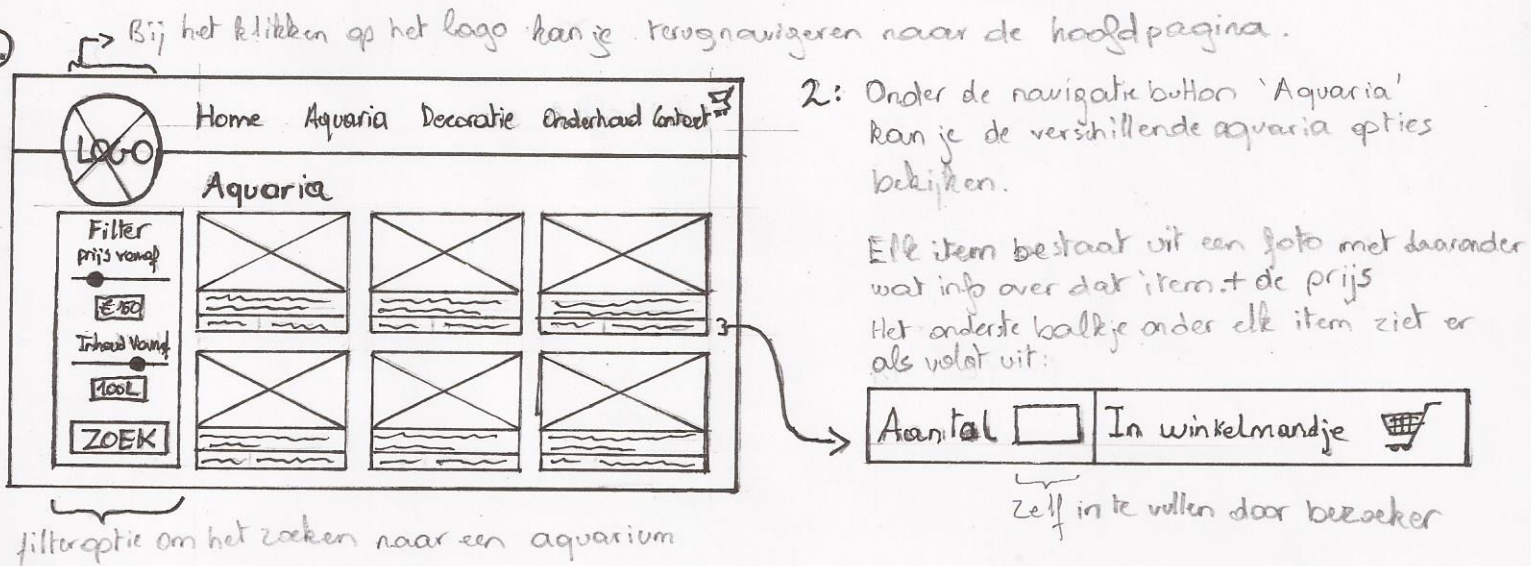 Bij het klikken op het logo kan je terugnavigeren naar de hoofdpagina.
LOGO
Home Aquaria Decoratie Onderhoud Contact
Aquaria
Filter
prijs vanaf
€160
Inhoud vanaf
100L
ZOEK
filteroptie om het zoeken naar een aquarium
2: Onder de navigatie button 'Aquaria'
kan je de verschillende aquaria opties
bekijken.
Elk item bestaat uit een foto met daaronder
wat info over dat item + de prijs
Het onderste balkje onder elk item ziet er
als volgt uit:
Aantal In winkelmandje
zelf in te vullen door bezoeker